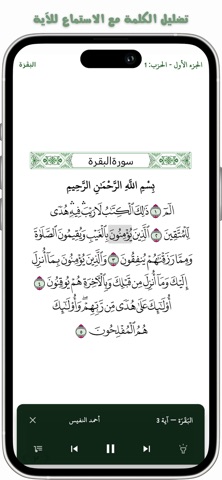 تضليل الكلمة مع الاستماع للآية
الجزء الأول - الحزب: 1
البقرة
سورة البقرة
بِسْمِ اللَّهِ الرَّحْمَٰنِ الرَّحِيمِ
الٓمٓ ١ ذَٰلِكَ الْكِتَٰبُ لَا رَيْبَ فِيهِ هُدًى
لِّلْمُتَّقِينَ ٢ الَّذِينَ يُؤْمِنُونَ بِالْغَيْبِ وَيُقِيمُونَ الصَّلَوٰةَ
وَمِمَّا رَزَقْنَٰهُمْ يُنفِقُونَ ٣ وَالَّذِينَ يُؤْمِنُونَ بِمَا أُنزِلَ
إِلَيْكَ وَمَا أُنزِلَ مِن قَبْلِكَ وَبِالْآخِرَةِ هُمْ يُوقِنُونَ ٤
أُولَٰئِكَ عَلَىٰ هُدًى مِّن رَّبِّهِمْ وَأُولَٰئِكَ
هُمُ الْمُفْلِحُونَ ٥
البَقَرَة — آية 3
أحمد النفيس